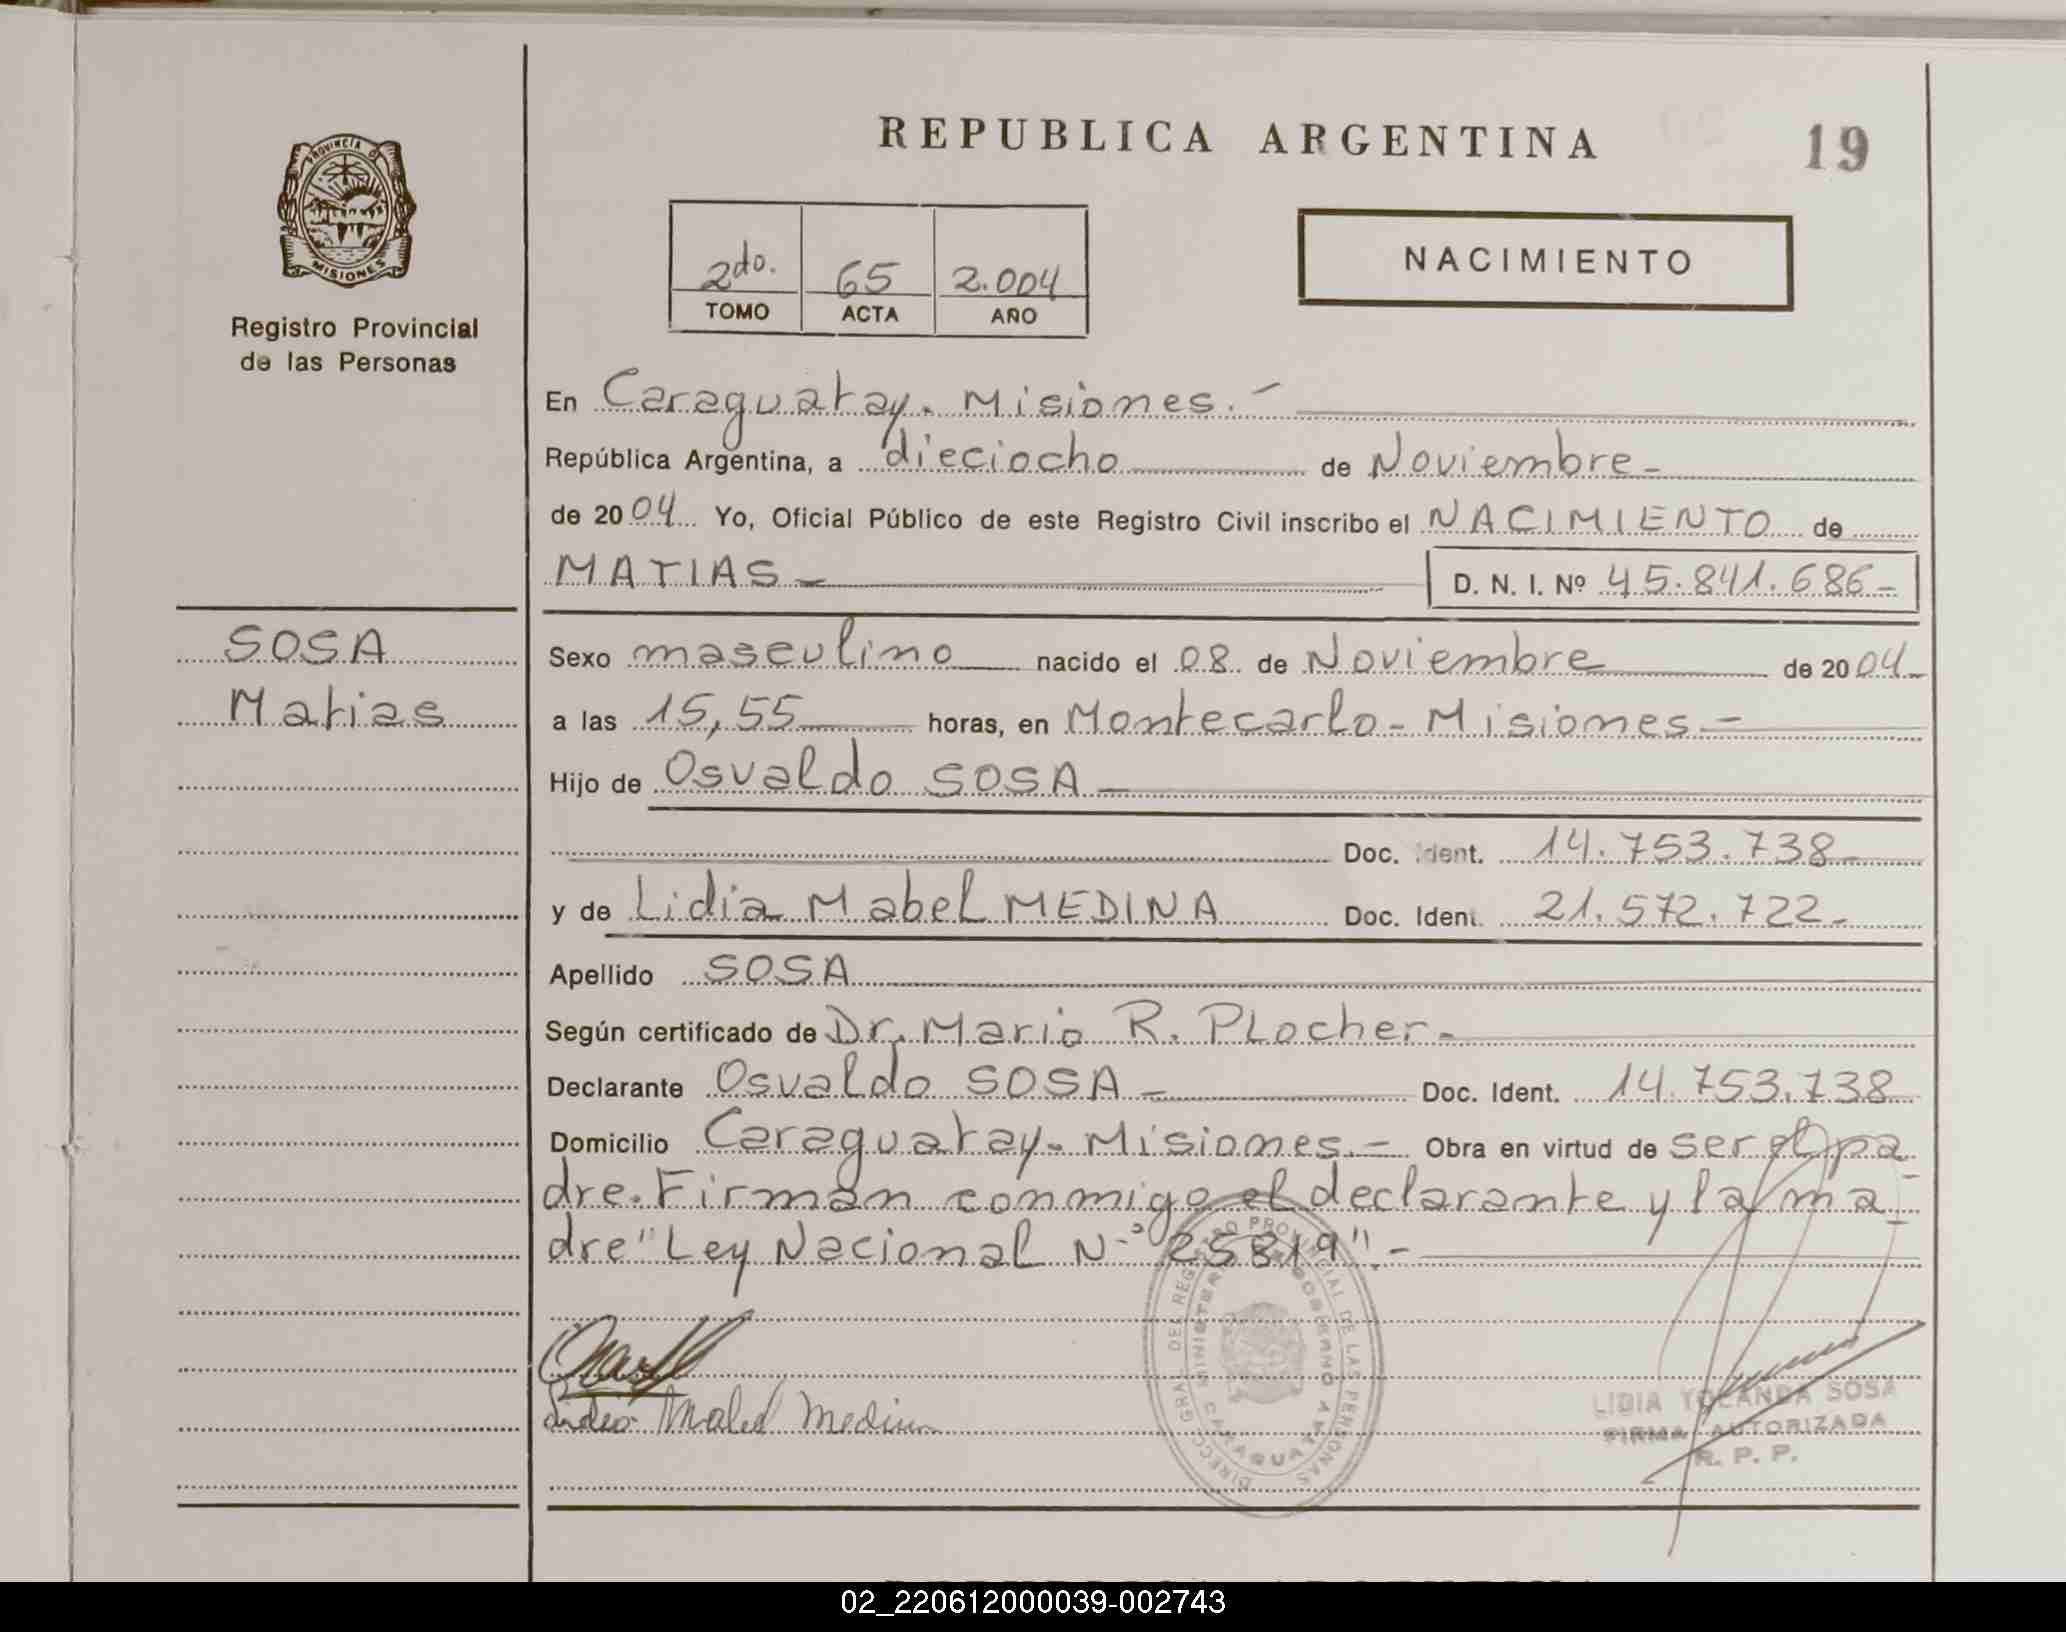 REPUBLICA ARGENTINA
19
PROVINCIA D
MISIONES
Registro Provincial
de las Personas
2do. 65 2.004
TOMO ACTA AÑO
NACIMIENTO
En Caraguatay. Misiones.-
República Argentina, a dieciocho de Noviembre-
de 2004 Yo, Oficial Público de este Registro Civil inscribo el NACIMIENTO de
MATIAS- D. N. I. Nº 45.841.686-
SOSA
Matias
Sexo masculino nacido el 08 de Noviembre de 2004-
a las 15,55 horas, en Montecarlo- Misiones-
Hijo de Osvaldo SOSA-
Doc. Ident. 14.753.738-
y de Lidia Mabel MEDINA Doc. Ident. 21.572.722-
Apellido SOSA
Según certificado de Dr. Mario R. PLocher-
Declarante Osvaldo SOSA- Doc. Ident. 14.753.738
Domicilio Caraguatay- Misiones.- Obra en virtud de ser el pa
dre. Firman conmigo el declarante y la ma-
dre "Ley Nacional N-º 25819".-
Mabel Medina
DIRECC. GRAL. DEL REGISTRO PROVINCIAL DE LAS PERSONAS
MINISTERIO GOBIERNO
CARAGUATAY
LIDIA YOLANDA SOSA
FIRMA AUTORIZADA
R. P. P.
02_220612000039-002743